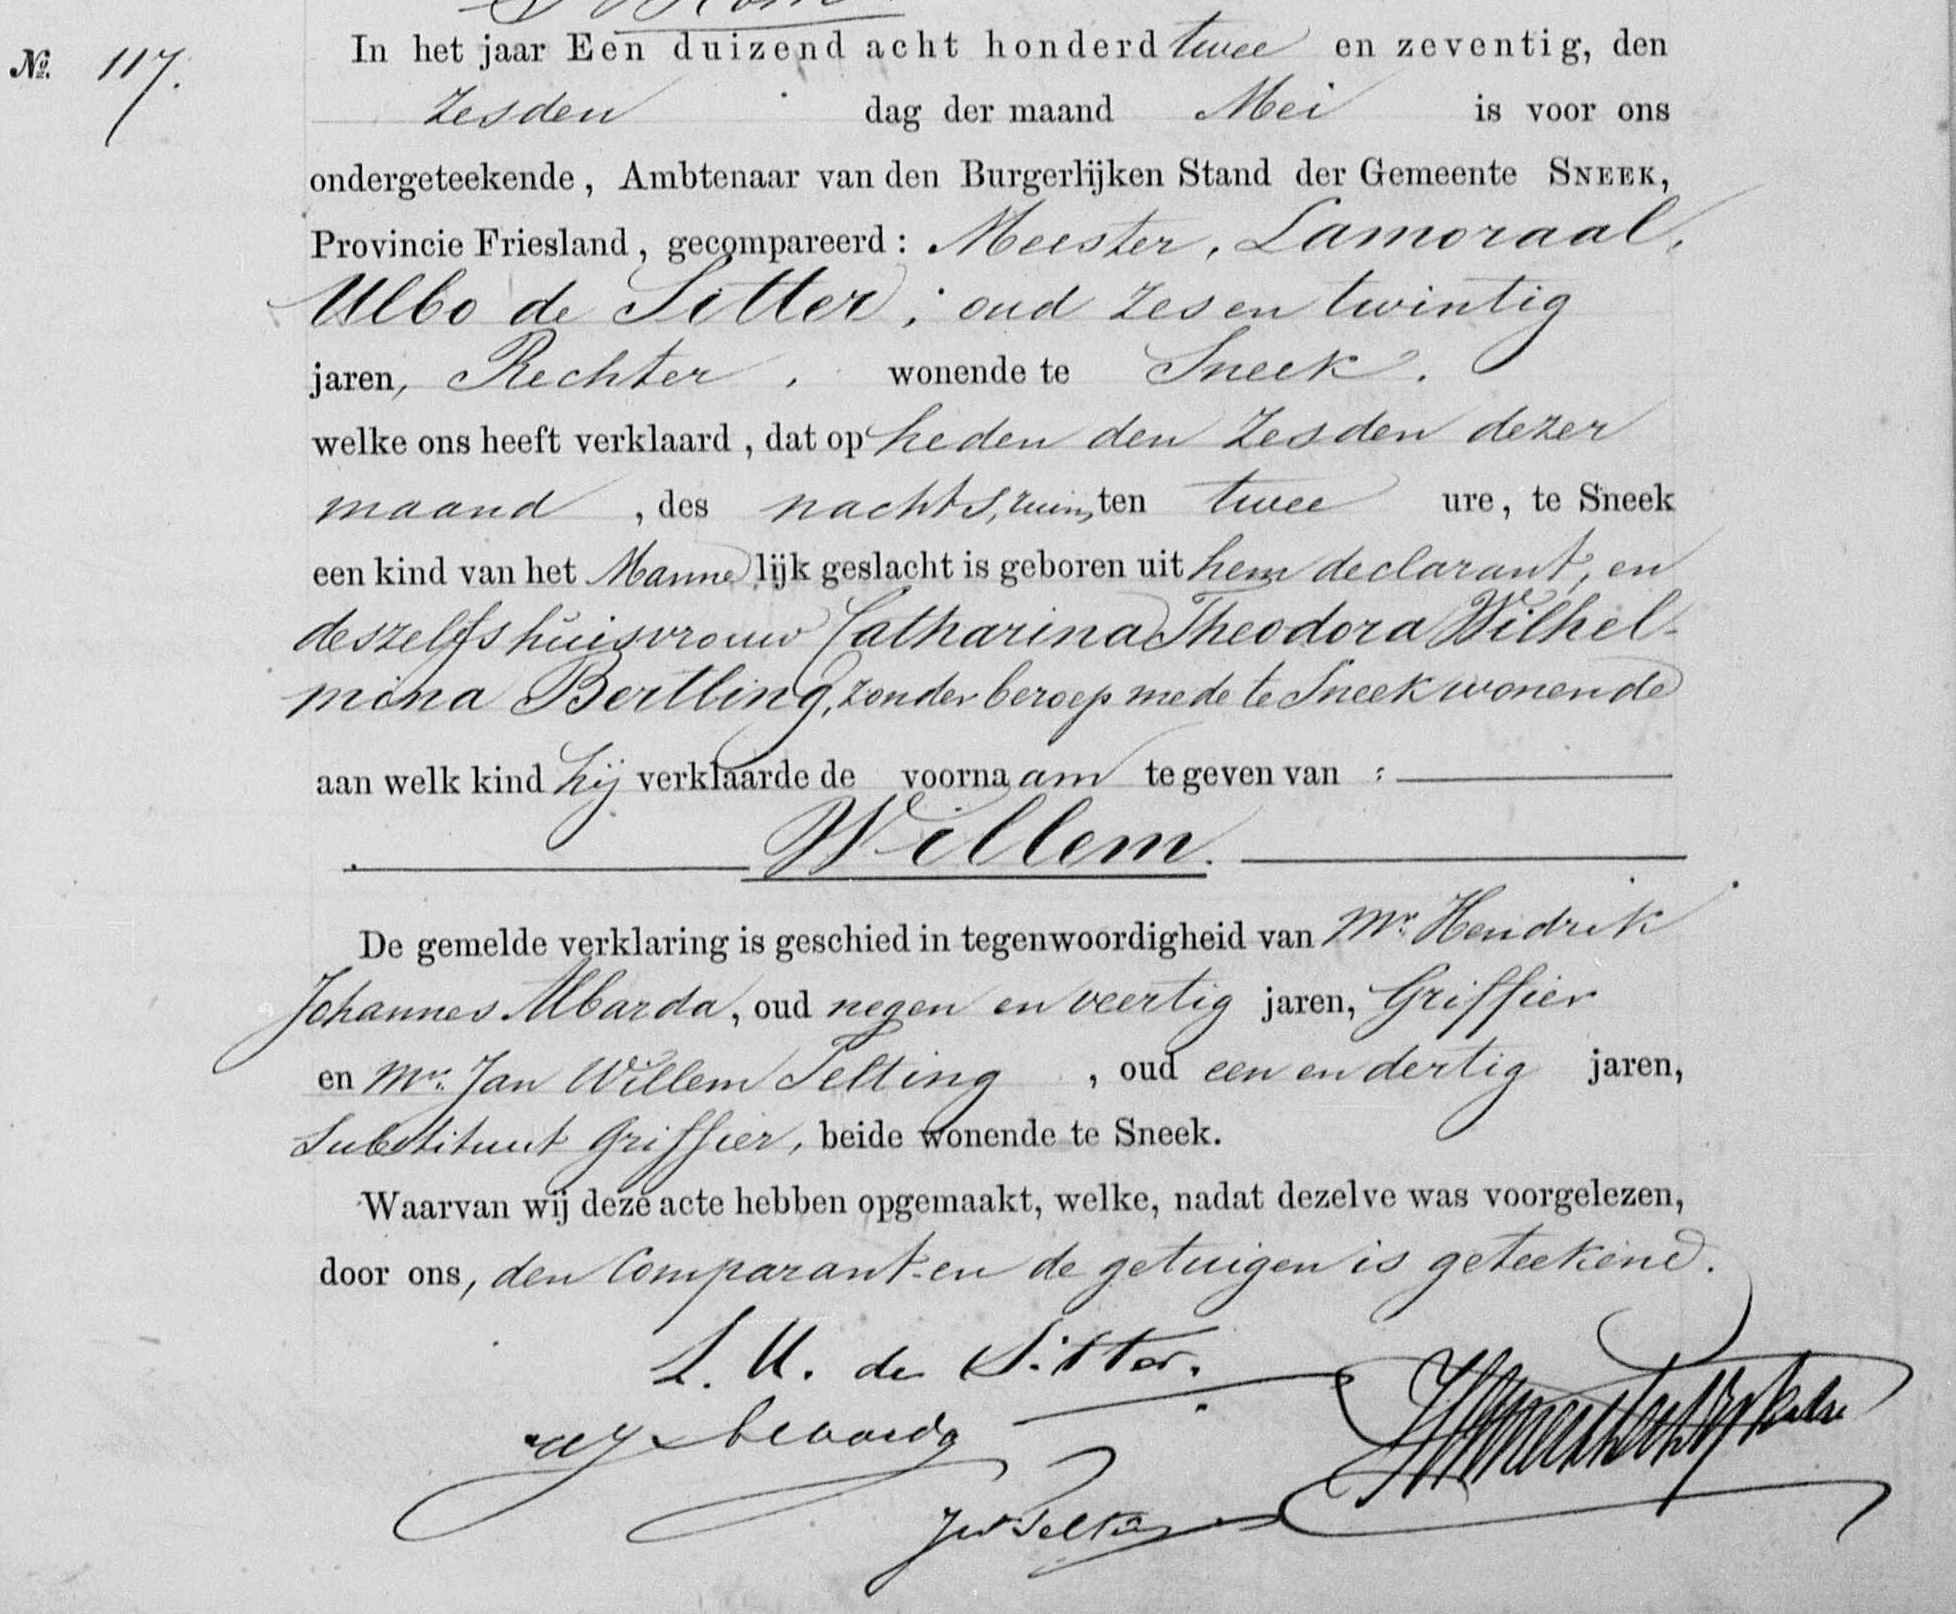 Nº. 117.
In het jaar Een duizend acht honderd twee en zeventig, den
zesden dag der maand Mei is voor ons
ondergeteekende, Ambtenaar van den Burgerlijken Stand der Gemeente SNEEK,
Provincie Friesland, gecompareerd: Meester, Lamoraal,
Ulbo de Sitter, oud zes en twintig
jaren, Rechter, wonende te Sneek.
welke ons heeft verklaard, dat op heden den zesden dezer
maand, des nachts, ruim, ten twee ure, te Sneek
een kind van het Mannelijk geslacht is geboren uit hem declarant, en
deszelfs huisvrouw Catharina Theodora Wilhel-
mina Bertling, zonder beroep mede te Sneek wonende
aan welk kind hij verklaarde de voornaam te geven van :
Willem.
De gemelde verklaring is geschied in tegenwoordigheid van Mr. Hendrik
Johannes Albarda, oud negen en veertig jaren, Griffier
en Mr. Jan Willem Telting, oud een en dertig jaren,
Substituut Griffier, beide wonende te Sneek.
Waarvan wij deze acte hebben opgemaakt, welke, nadat dezelve was voorgelezen,
door ons, den Comparant en de getuigen is geteekend.
L. U. de Sitter.
JW Telting